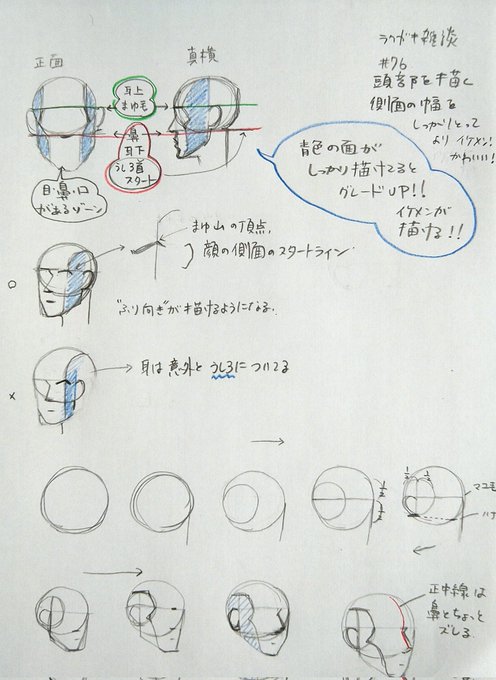 ラクガキ雑談
#76
頭部を描く
側面の幅を
しっかりとって
よりイケメン!
かわいい!
正面
真横
耳上
まゆ毛
鼻
耳下
うしろ首
スタート
目・鼻・口
があるゾーン
青色の面が
しっかり描けてると
グレードUP!!
イケメンが
描ける!!
まゆ山の頂点、
顔の側面のスタートライン
○
"ふり向き"が描けるようになる。
×
耳は意外とうしろについてる
1/2
1/2
1/2
1/2
マユ毛
ハナ
正中線は
鼻とちょっと
ズレる。